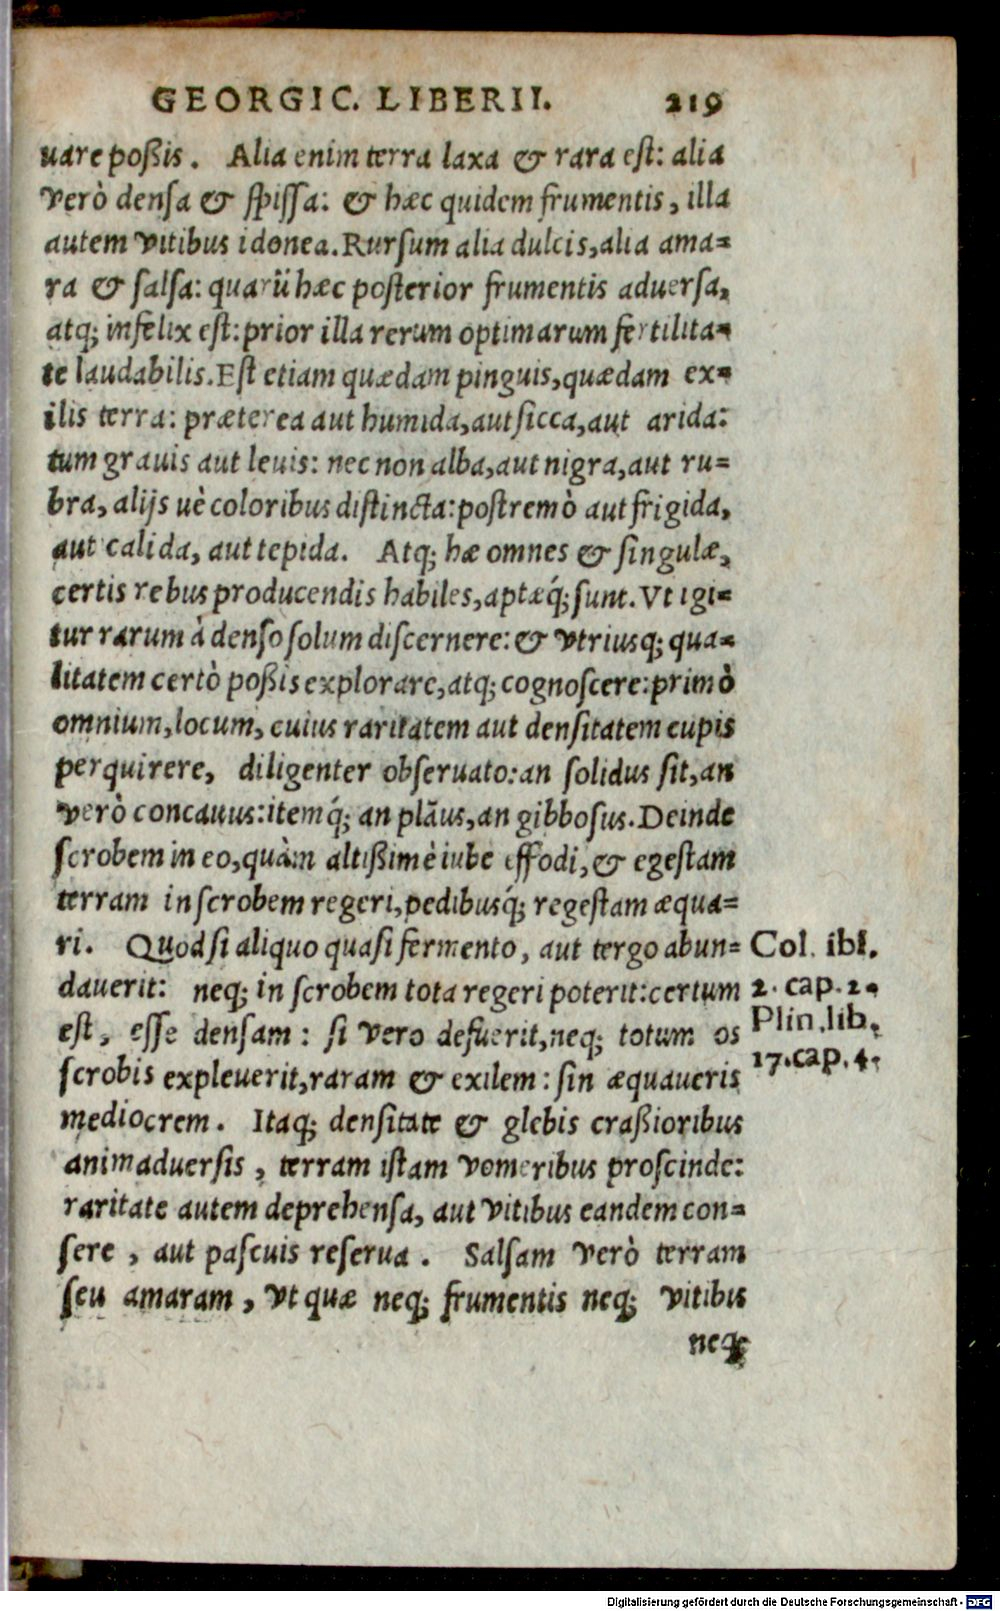 GEORGIC. LIBER II. 219
uare poßis. Alia enim terra laxa & rara est: alia
verò densa & spissa: & hæc quidem frumentis, illa
autem vitibus idonea. Rursum alia dulcis, alia ama=
ra & salsa: quarũ hæc posterior frumentis aduersa,
atq; infelix est: prior illa rerum optimarum fertilita=
te laudabilis. Est etiam quædam pinguis, quædam ex=
ilis terra: præterea aut humida, aut sicca, aut arida:
tum grauis aut leuis: nec non alba, aut nigra, aut ru=
bra, alijs uè coloribus distincta: postremò aut frigida,
aut calida, aut tepida. Atq; hæ omnes & singulæ,
certis rebus producendis habiles, aptæq́; sunt. Vt igi=
tur rarum à denso solum discernere: & vtriusq; qua=
litatem certò poßis explorare, atq; cognoscere: primò
omnium, locum, cuius raritatem aut densitatem cupis
perquirere, diligenter obseruato: an solidus sit, an
verò concauus: itemq́; an plãus, an gibbosus. Deinde
scrobem in eo, quàm altißimè iube effodi, & egestam
terram in scrobem regeri, pedibusq́; regestam æqua=
ri. Quod si aliquo quasi fermento, aut tergo abun=
dauerit: neq; in scrobem tota regeri poterit: certum
est, esse densam: si vero defuerit, neq; totum os
scrobis expleuerit, raram & exilem: sin æquaueris
mediocrem. Itaq; densitate & glebis craßioribus
animaduersis, terram istam vomeribus proscinde:
raritate autem deprehensa, aut vitibus eandem con=
sere, aut pascuis reserua. Salsam verò terram
seu amaram, vt quæ neq; frumentis neq; vitibus
neq;
Col. ibl.
2. cap. 2.
Plin. lib.
17. cap. 4.
Digitalisierung gefördert durch die Deutsche Forschungsgemeinschaft - DFG